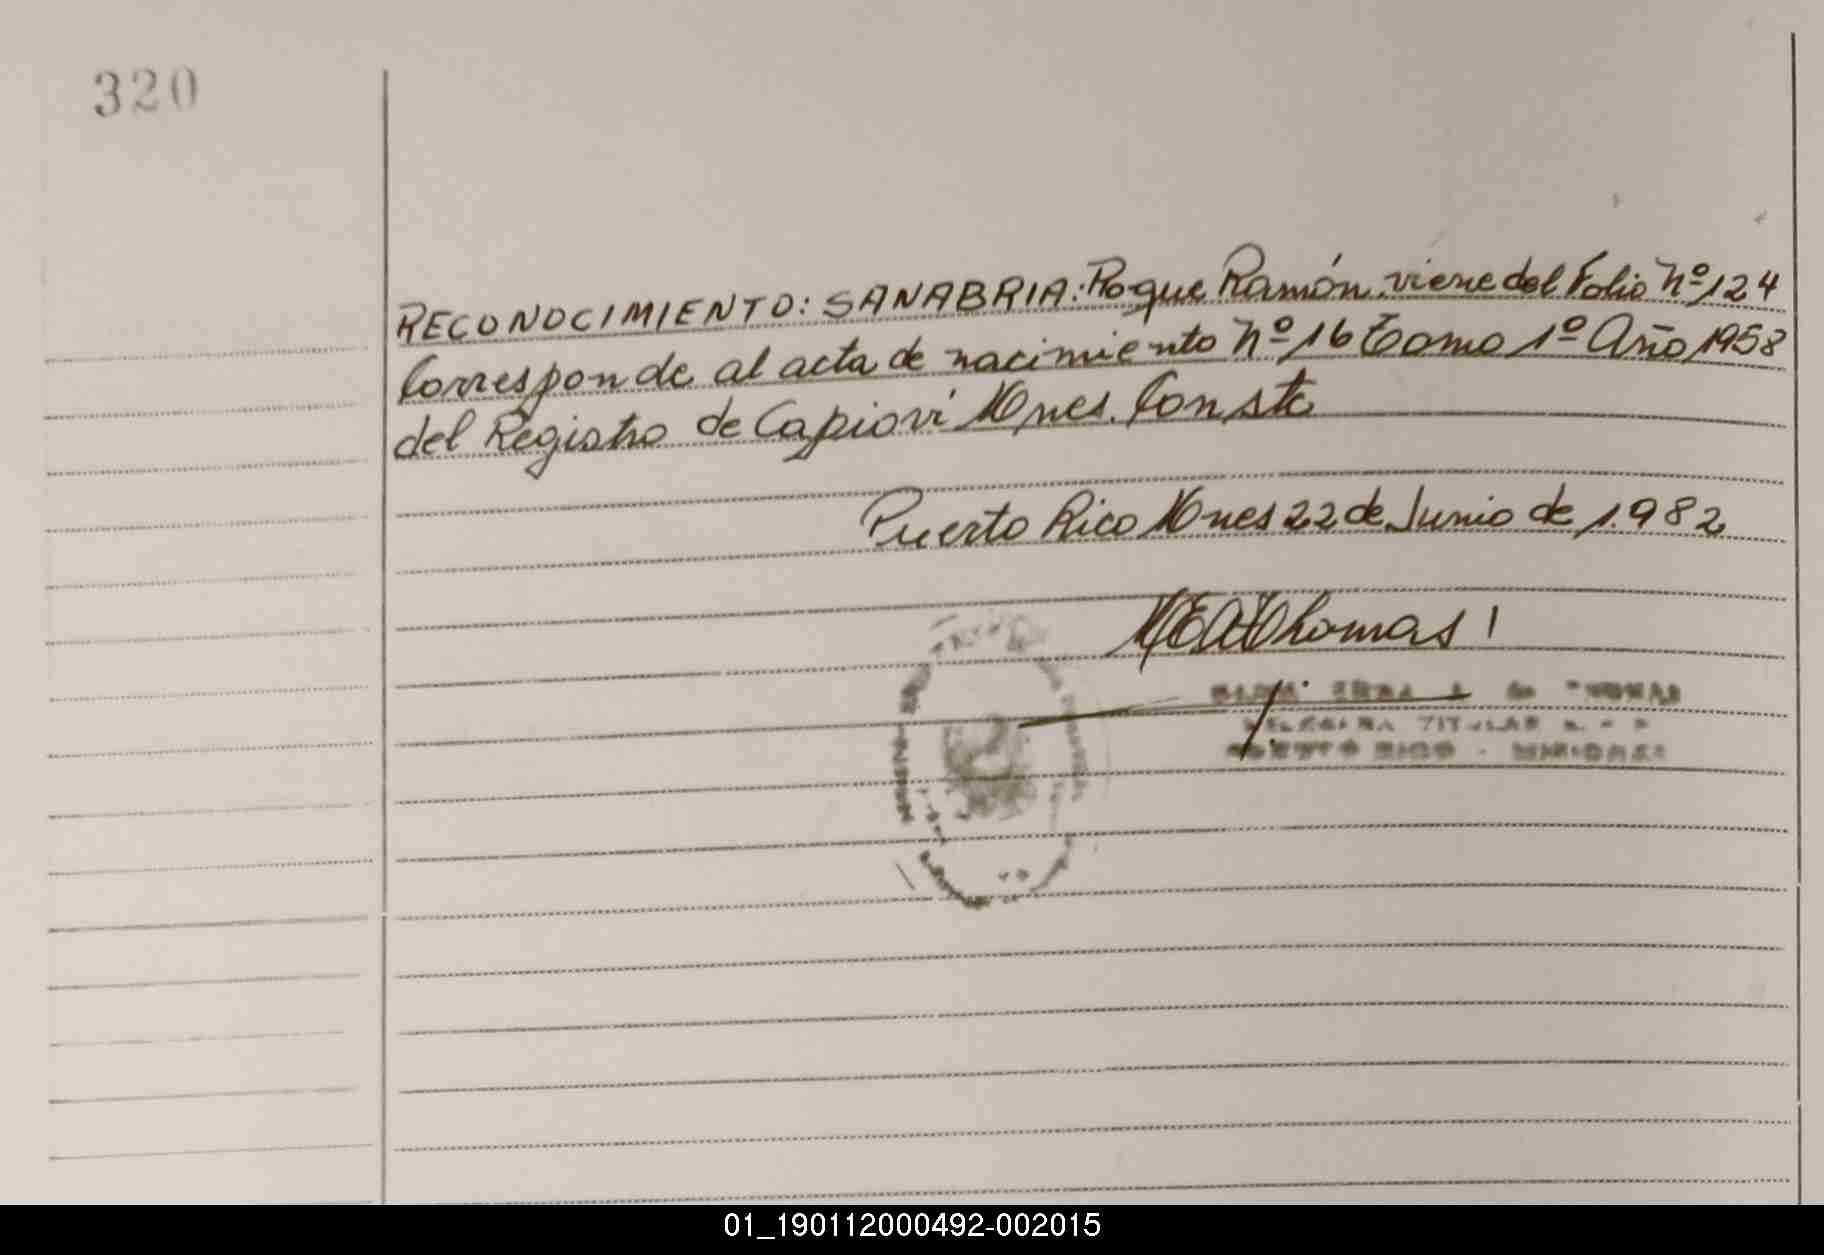 320
RECONOCIMIENTO: SANABRIA: Roque Ramón viene del Folio Nº 124
Corresponde al acta de nacimiento Nº 16 Tomo 1º Año 1958
del Registro de Capioví Mnes. Conste
Puerto Rico Mnes 22 de Junio de 1.982
MEAThomas
TITULAR
PUERTO RICO - MISIONES
01_190112000492-002015